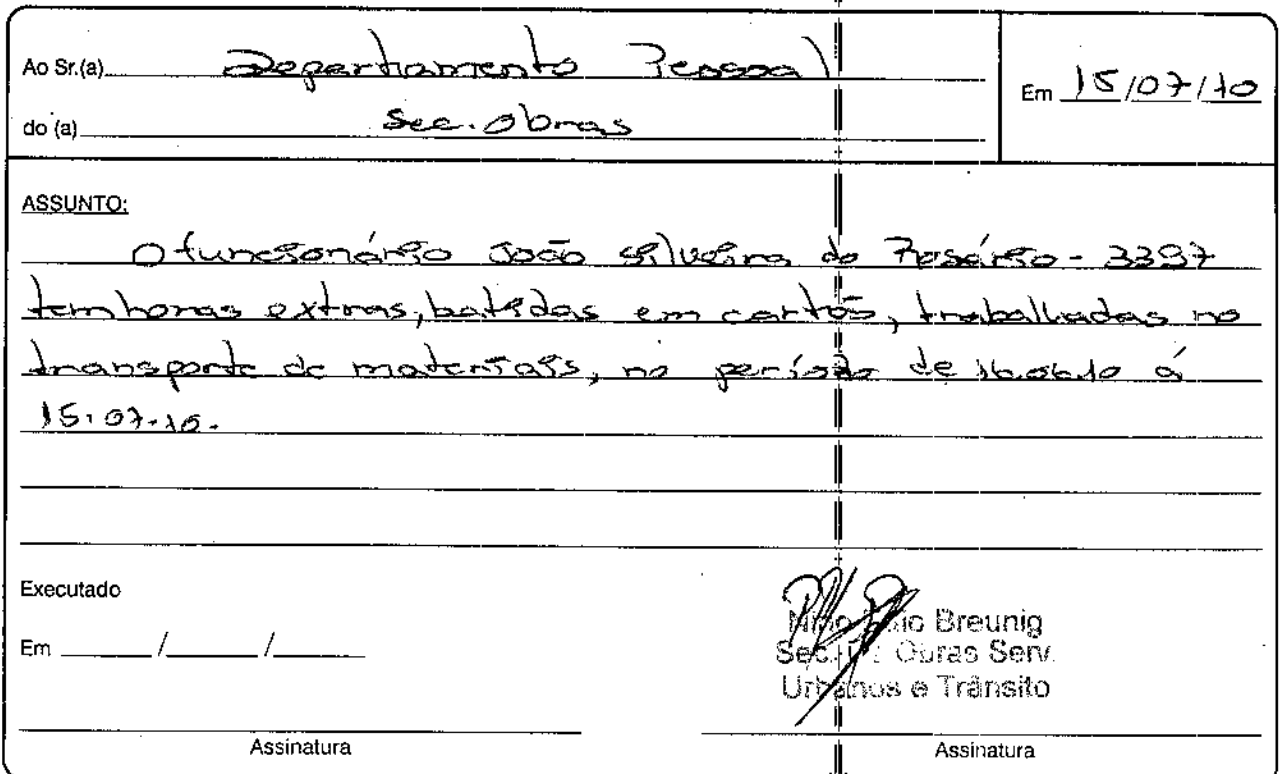 Ao Sr.(a) Departamento Pessoal
Em 15/07/10
do (a) Sec. Obras
ASSUNTO:
O funcionário João Silveira do Rosário - 3397
tem horas extras, batidas em cartão, trabalhadas no
transporte de materiais, no período de 16.06.10 á
15.07.10.
Executado
Em / /
Breunig
Sec. Obras Serv.
Urbanos e Trânsito
Assinatura
Assinatura